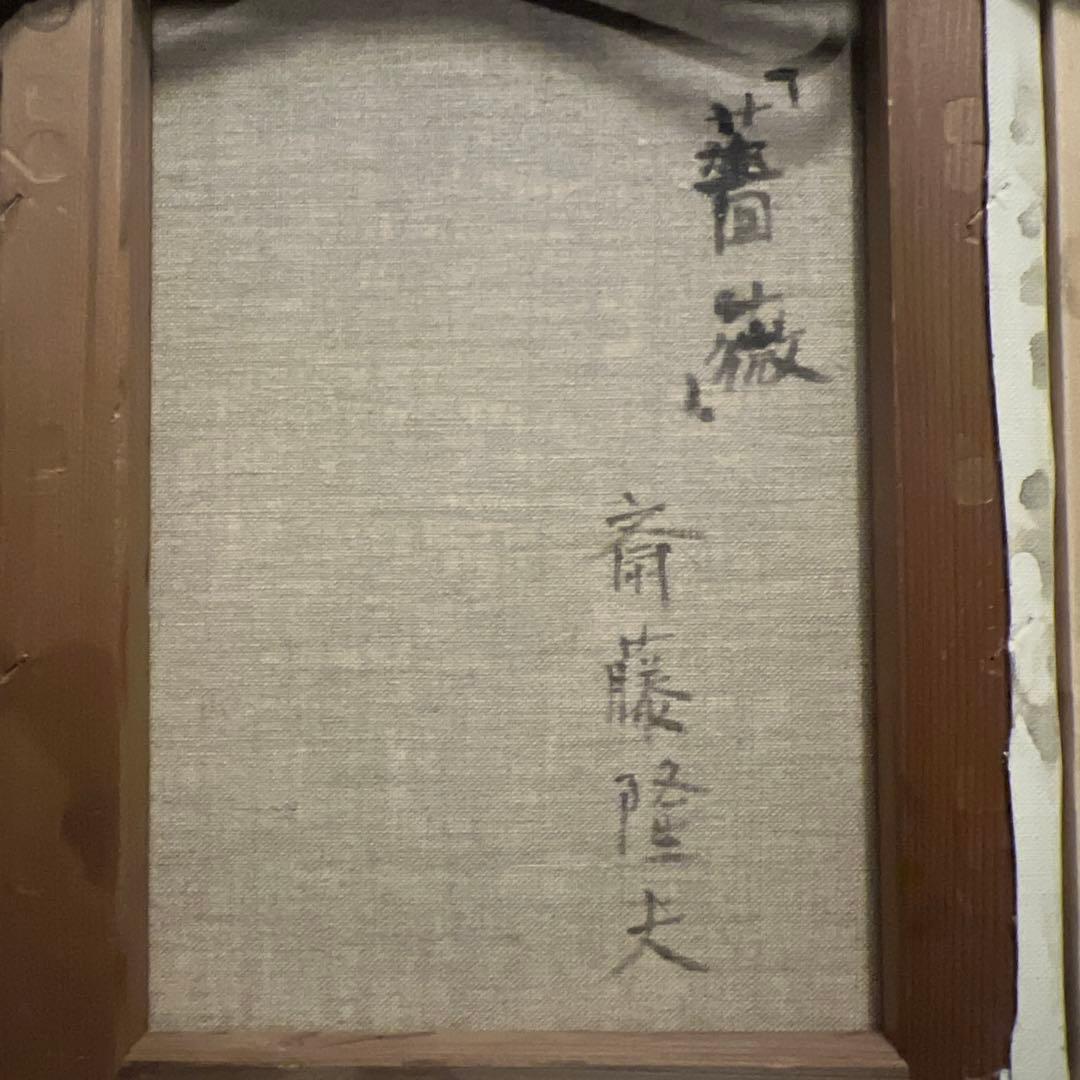 「薔薇」
斎藤隆夫